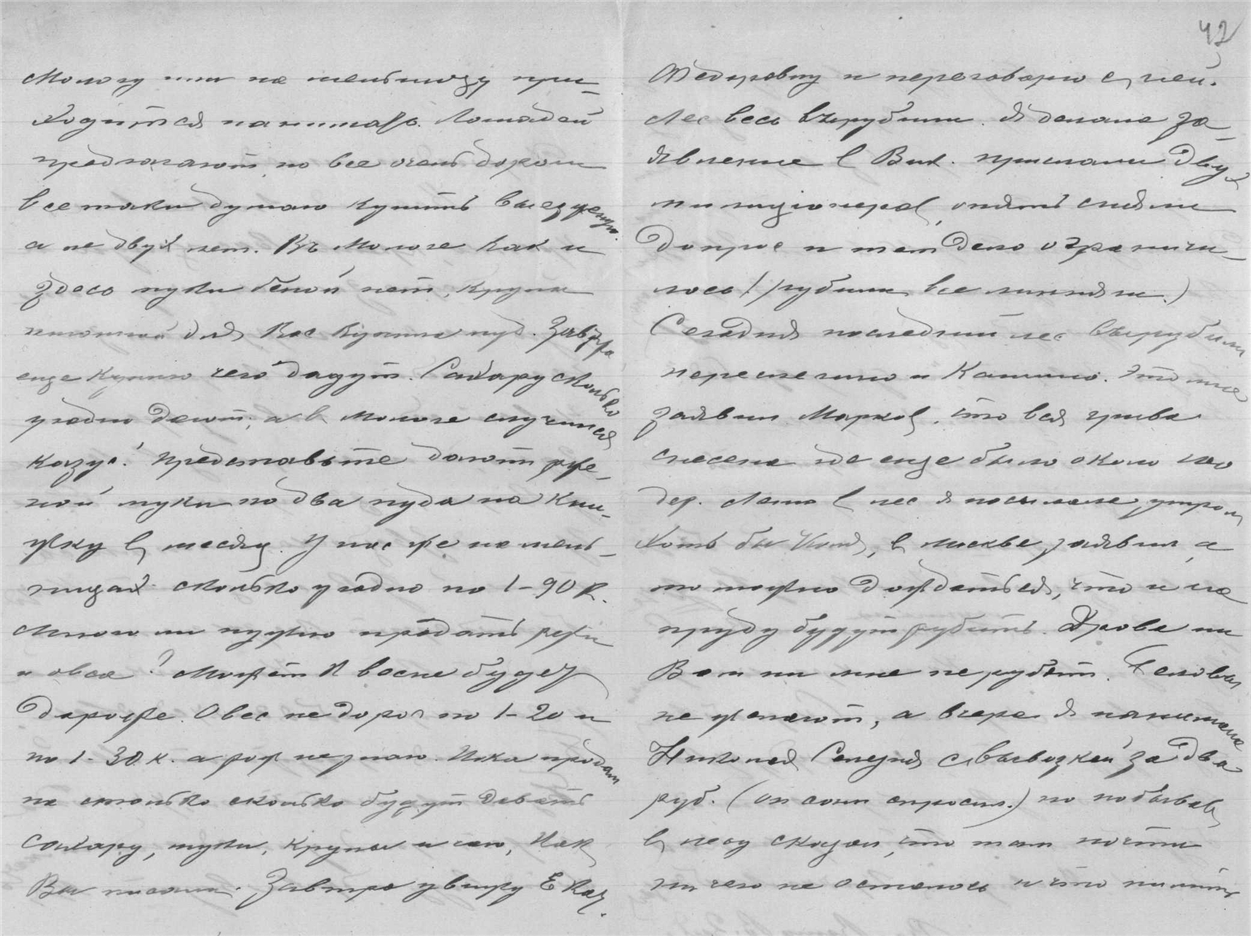 Мологу или на мельницу при-
ходится нанимать. Лошадей
предлагают, но все очень дороги
все таки думаю купить выездную.
а не двух лет. Въ Мологе как и
здесь муки белой нет, крупы
пшенной для Вас купила пуд. Завтра
еще куплю чего дадут. Сахару сколько
угодно дают, а в Мологе случился
казус! Представьте дают ржа-
ной муки по два пуда на кни-
жку в месяц. У нас же на мель-
ницах сколько угодно по 1-90 к.
Много ли нужно продать ржи
и овса? Может к весне будет
дороже. Овес недорог по 1-20 и
по 1-30 к. а рож не знаю. Пока продам
на столько сколько будут давать
сахару, муки, крупы и что, как
Вы писали. Завтра увижу Екат.
42
Федоровну и переговорю с ней.
Лес весь вырубили. Я делала за-
явление в Вик. прислали двух
милиционеров, опять сняли
допрос и тем дело ограничи-
лось! (рубили все миряне.)
Сегодня последний лес вырубили
и Кашино. Это мне
заявил Марков, что вся грива
снесена где еще было около 100
дер. Лето в лес я посылала утром
хоть бы Вы, в Москве, заявили, а
то можно дождаться, что и на
пруду будут рубить. Дрова ни
Вам ни мне не рубят.
не желают, а вчера я нанимала
Николая с вывозкой за два
руб. (он сам спросил.) но побывав
в лесу сказал, что там почти
ничего не осталось и что пилить